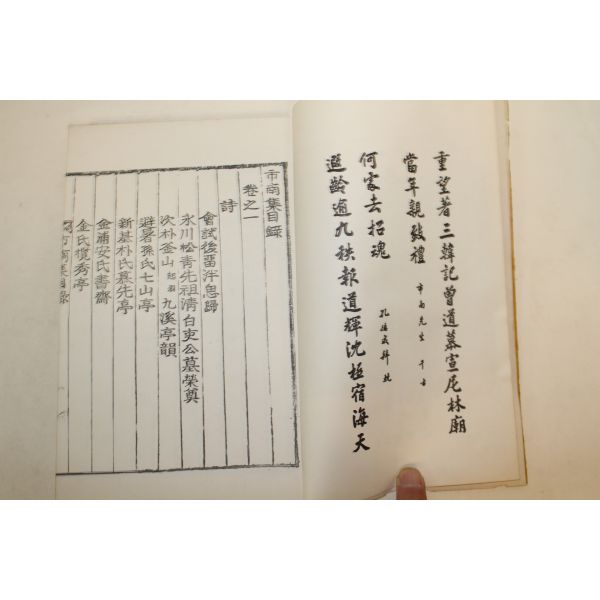 重望著三韓記曾道慕宣尼林廟
當年親致禮
市南先生千古
何家去招魂
遐齡逾九秩報道輝沈極宿海天
孔德成拜
市南集目錄
卷之一
詩
會試後留泮思歸
永川松青先祖清白吏公墓榮奠
次朴釜山九溪亭韻
避暑孫氏七山亭
新基朴氏慕先亭
金浦安氏書齋
金氏攬秀亭